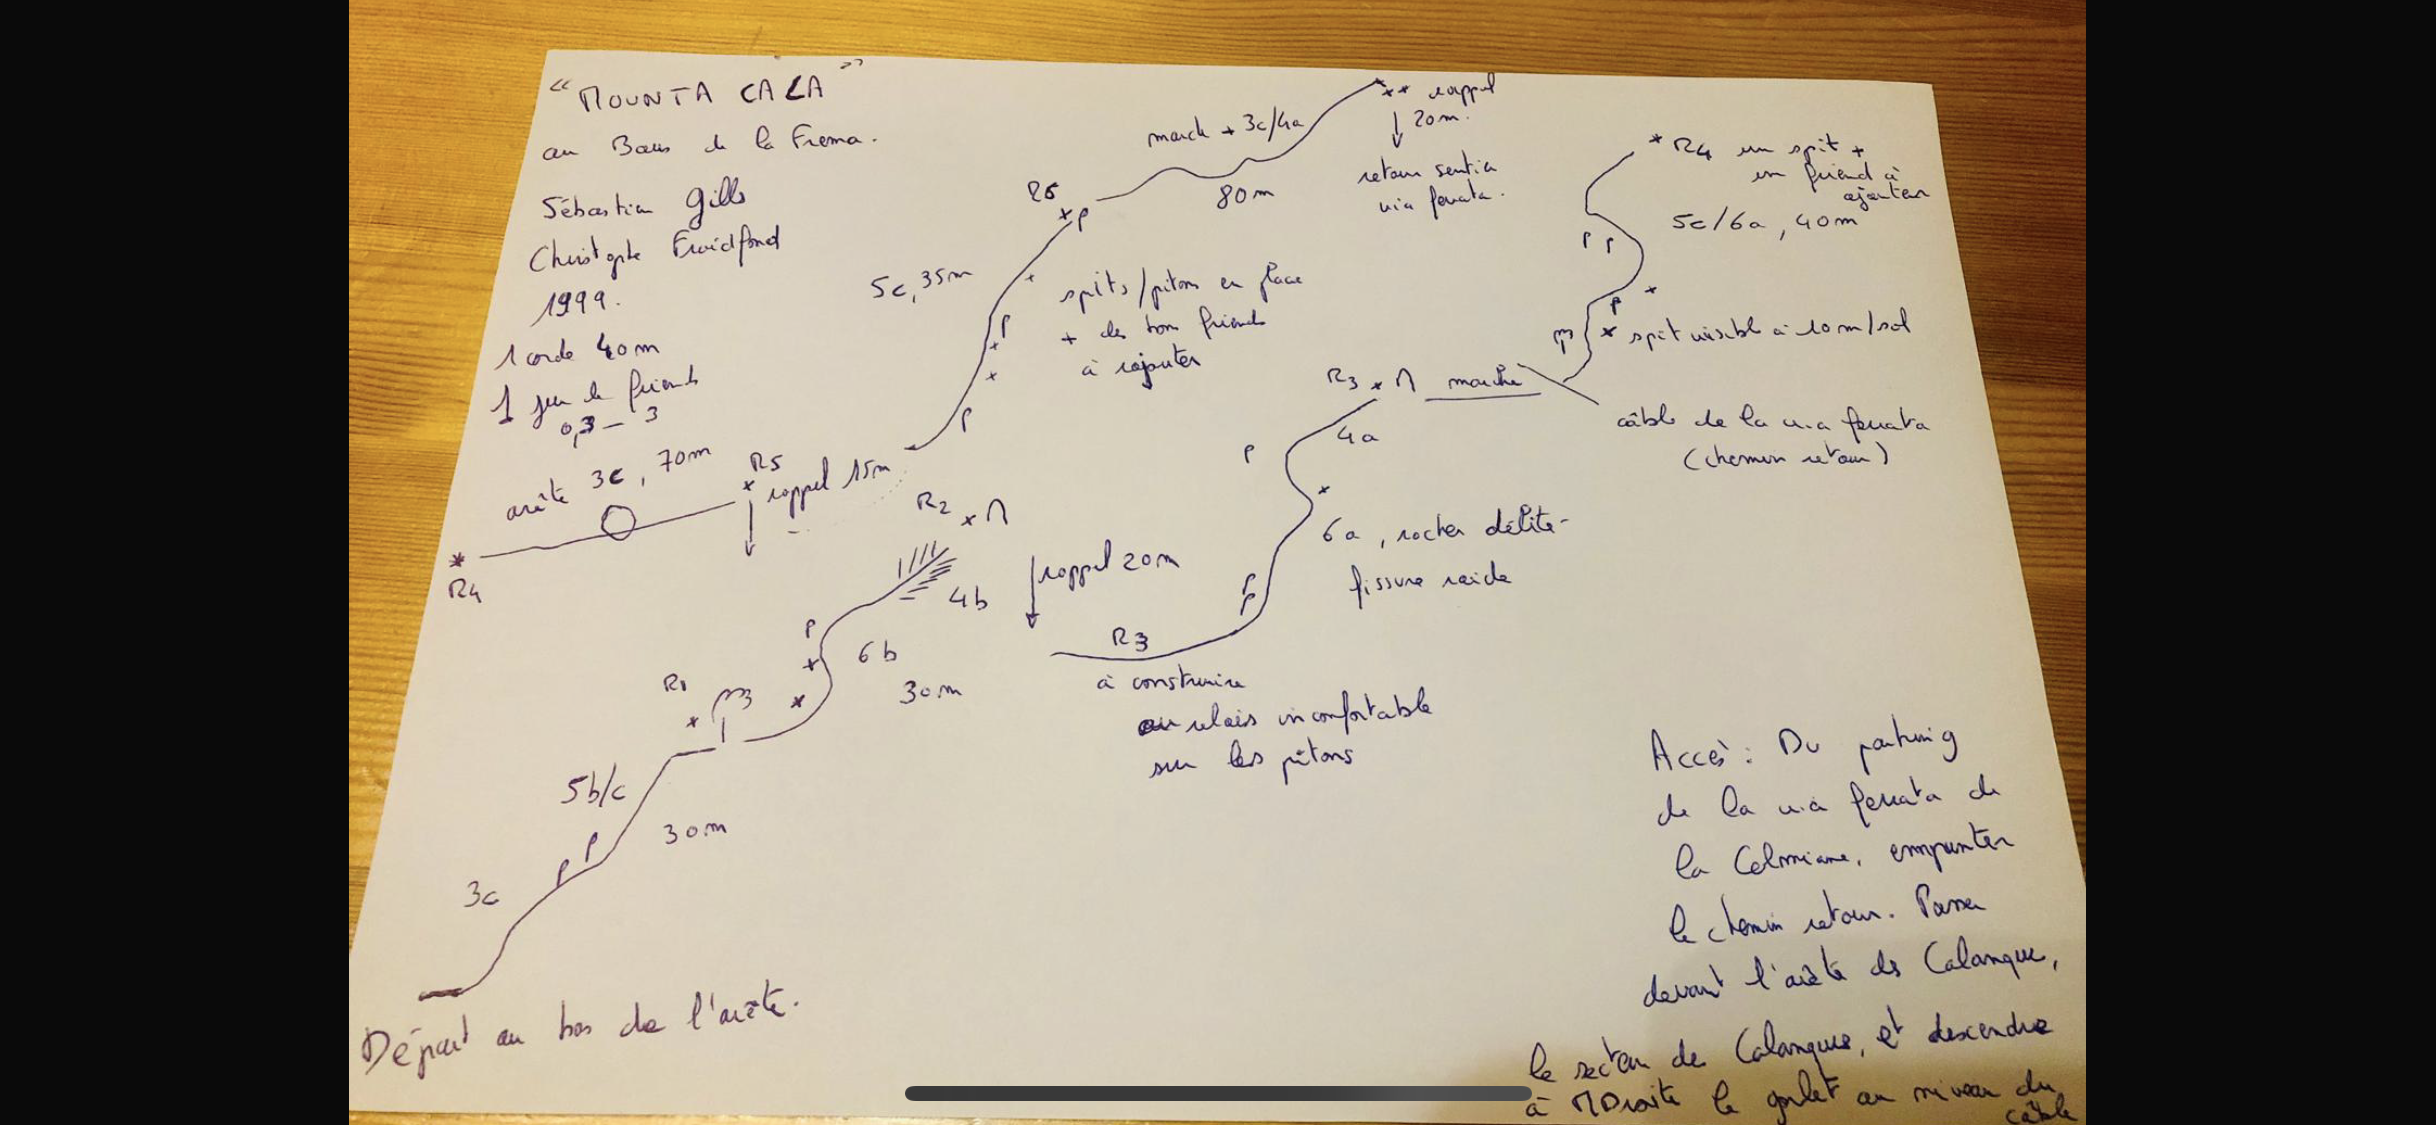 "MOUNTA CALA"
au Baus de la Frema.
Sébastien Gills
Christophe Froidfond
1999.
1 corde 40m
1 jeu de friends
0,3 – 3
arête 3c, 70m
R4
R5
rappel 15m
5c, 35m
R6
P
P
P
spits/pitons en place
+ des bons friends
à rajouter
marche + 3c/4a
80m
rappel
20m.
retour sentier
via ferrata.
R4 un spit +
un friend à
ajouter
5c/6a, 40m
P P
P
spit visible à 10m/sol
R3
marche
câble de la via ferrata
(chemin retour)
4a
P
6a, rocher délité-
fissure raide
P
P
R3
à construire
ou relais inconfortable
sur les pitons
R2
rappel 20m
4b
P
6b
30m
R1
5b/c
30m
P P
3c
Départ au bas de l'arête.
Accès : Du parking
de la via ferrata de
la Colmiane, emprunter
le chemin retour. Passer
devant l'arête des Calanques,
le secteur de Calanques, et descendre
à Droite le goulet au niveau du
câble